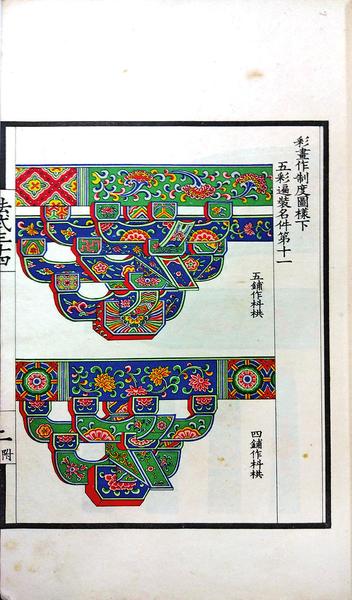 彩畫作制度圖樣下
五彩遍裝名件第十一
五鋪作枓栱
四鋪作枓栱
法式三十四
二
附